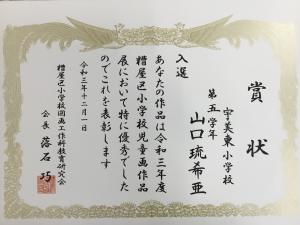 賞状
宇美東小学校
第五学年
山口琉希亜
入選
あなたの作品は令和三年度
糟屋区小学校児童画作品
展において特に優秀でした
のでこれを表彰します
令和三年十二月一日
糟屋区小学校図画工作科教育研究会
会長 落石巧